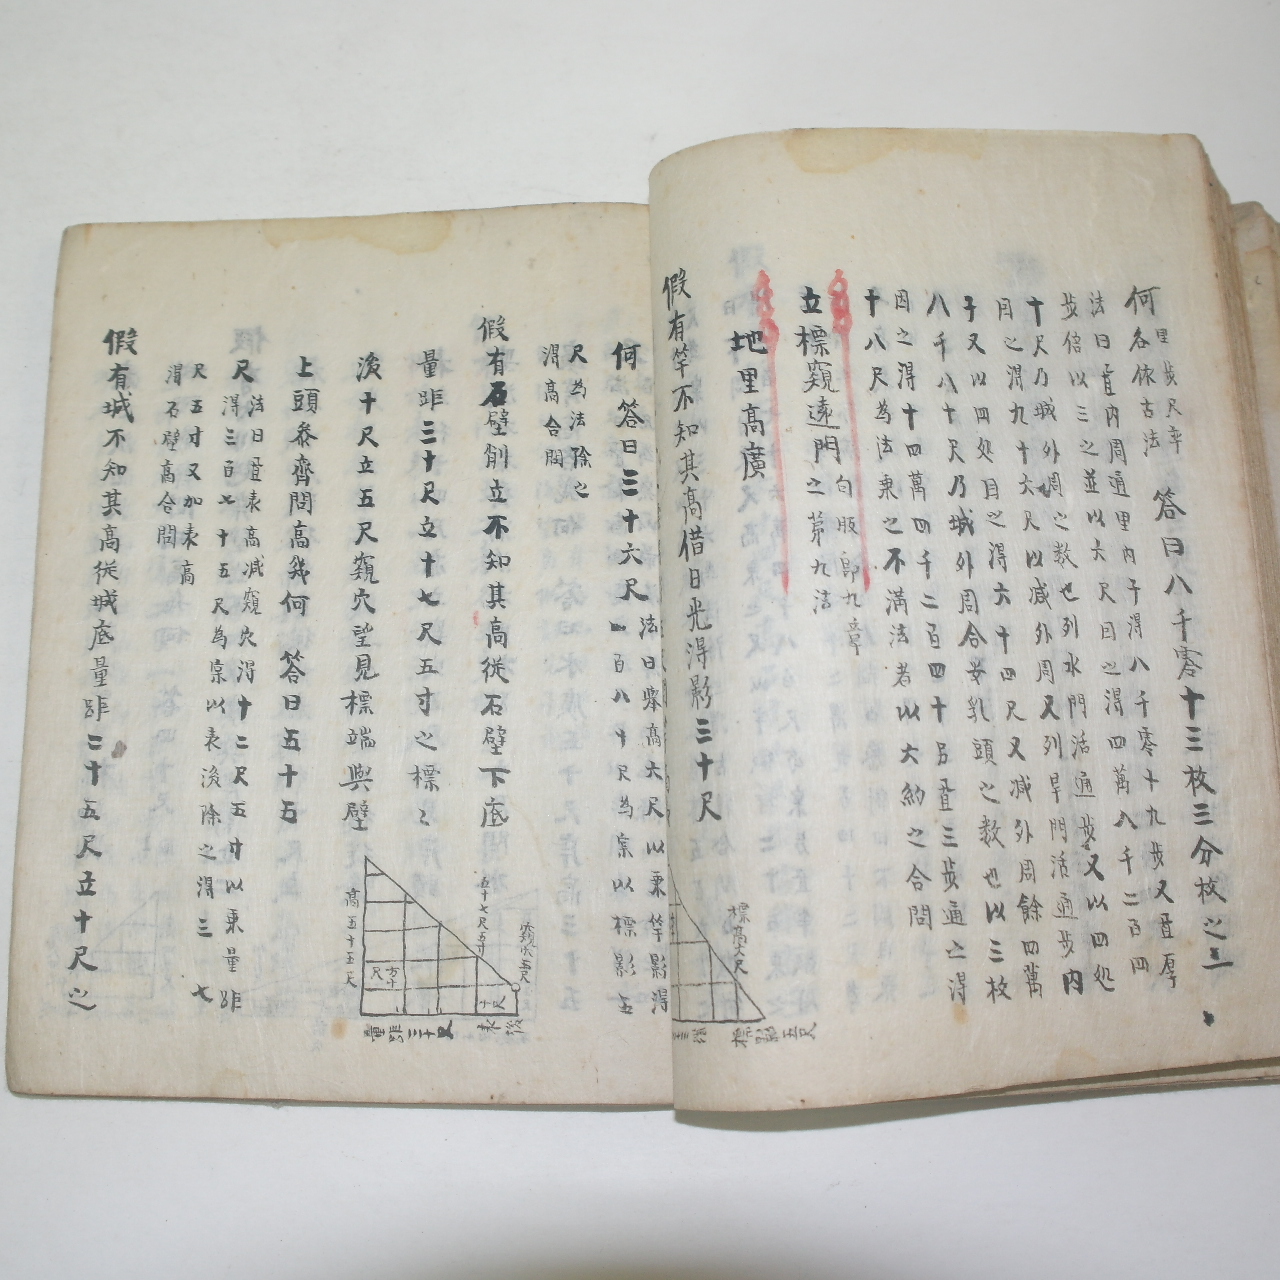 何 里步尺率
各依古法 答曰八千零十三枚三分枚之二
法曰置內周通里內子得八千零十九步又置厚
步倍以三之並以六尺因之得四萬八千二百四
十尺乃城外周之数也列水門活通步又以四処
因之得九十六尺以减外周又列旱門活通步內
子又以四処因之得六十四尺又减外周餘四萬
八千八十尺乃城外周合女乳頭之数也以三枚
因之得十四萬四千二百四十另置三步通之得
十八尺為法乗之不滿法者以大約之合問
立標窺遠門 句股即九章之第九法
地里高廣
假有竿不知其高借日光得影三十尺
標高六尺
標影五尺
何 答曰三十六尺 法曰舉高六尺以乗竿影得
一百八十尺為實以標影五
尺為法除之
得高合問
假有石壁削立不知其高從石壁下底
量距三十尺立十七尺五寸之標之
後十尺立五尺窺穴望見標端與壁
上頭叅齊問高幾何 答曰五十五
尺 法曰置表高减窺穴得十二尺五寸以乗量距
得三百七十五尺為實以表後除之得三十七
尺五寸又加表高
得石壁高合問
高五十五尺
方十尺
五十七尺五寸
窺穴五尺
十尺
量距三十尺
表後
假有城不知其高從城底量距二十五尺立十尺之